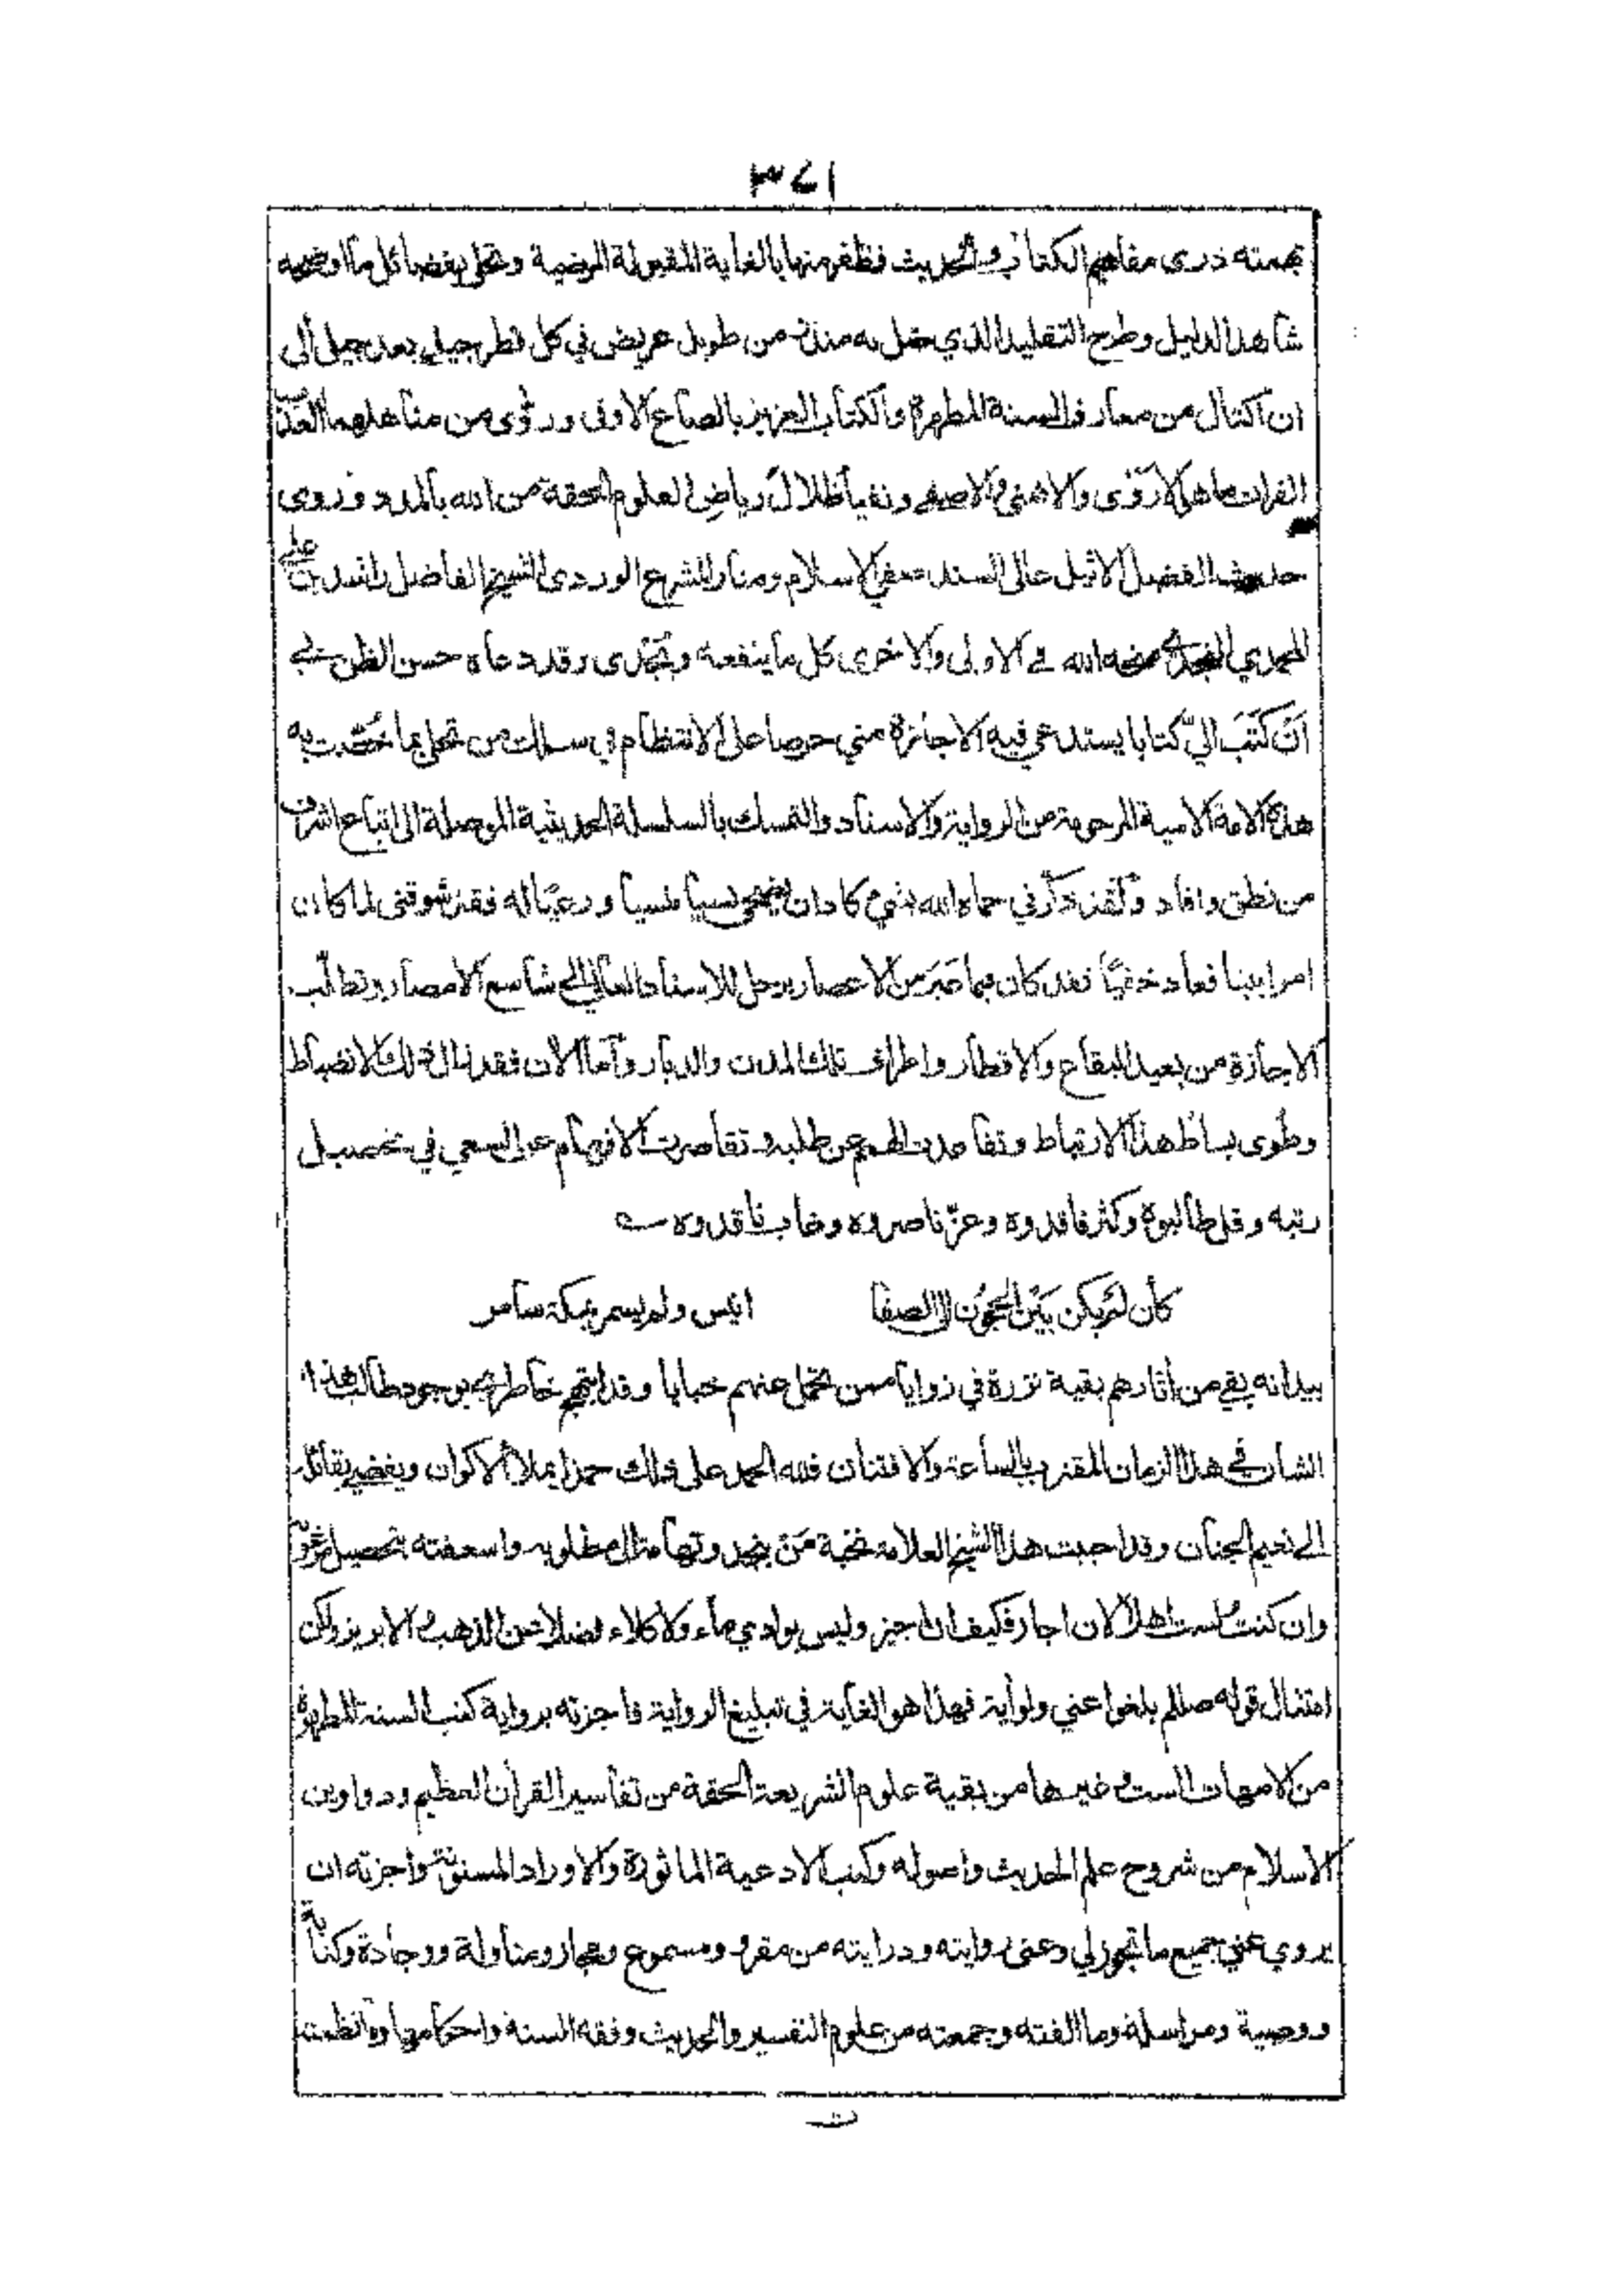 ٣٤١
بهمته ذرى مفاهيم الكتاب والحديث فظفر منها بالغاية المقبولة المرضية وتحلى بفضائل ما اوضحه
شاهد الدليل وطرح التقليد الذي ضل به من طويل عريض في كل قطر جيل بعد جيل الى
ان اكتال من معارف السنة المطهرة والكتاب العزيز بالصاع الاوفى وروّى من مناهلهما العذب
الفرات ما هو الاروى والاهنى والاصفى وتفيأ ظلال رياض العلوم الحقة من الله بالمدد وروى
حديث الفضل الاثيل عالى السند صفي الاسلام ومنار الشرع الوردى الشيخ الفاضل راشد بن علي
النجدي منحه الله في الاولى والاخرى كل ما ينفعه ويجدى وقد دعاه حسن الظن بي
اَنْ كَتَبَ اليّ كتابا يستدعي فيه الاجازة مني حرصا على الانتظام في سلك من تحلى بما خُصّت به
هذه الامة الامية المرحومة من الرواية والاسناد والتمسك بالسلسلة الحديثية الموصلة الى اتباع اشرف
من نطق وافاد ولقد ذكّرني حماه الله بشيء كاد ان يضحى نسيا منسيا ورعيًا له فقد شوقنى لما كان
امرا بينا فعاد خفيًا فقد كان فيما غَبَر من الاعصار يرحل للاسناد العالي الى شاسع الامصار وتطالب
الاجازة من بعيد البقاع والاقطار واطراف تلك المدن والديار واما الآن فقد زال ذلك الانضباط
وطُوى بساط هذا الارتباط وتقاعدت الهمم عن طلبه وتقاصرت الافهام عن السعي في تحصيل
رتبه وقل طالبوه وكثر فاقدوه وعزّ ناصروه وخاب ناقدوه
كأن لم يكن بَيْن الحَجُون الى الصفا انيس ولم يسمر بمكة سامر
بيد انه بقي من أثارهم بقية نزرة في زوايا ممن تحمل عنهم خبايا وقد ابتهج خاطرى بوجود طالب هذا
الشان في هذا الزمان المقترب بالساعة والافتتان فلله الحمد على ذلك حمدا يملأ الاكوان ويفضى بقائل
الى نعيم الجنان وقد اجبت هذا الشيخ العلامة نخبة مَنْ بنجد وتهامة الى مطلوبه واسعفته بتحصيل مرغوبه
وان كنت لست اهلا لان اجاز فكيف ان اجيز وليس بوادي ماء ولا كلاء فضلا عن الذهب الابريز ولكن
امتثال قوله صللم بلغوا عني ولو أية فهذا هو الغاية في تبليغ الرواية فاجزته برواية كتب السنة المطهرة
من الامهات الست وغيرها من بقية علوم الشريعة الحقة من تفاسير القرأن العظيم ودواوين
الاسلام من شروح علم الحديث واصوله وكتب الادعية الماثورة والاوراد المسنونة واجزته ان
يروي عني جميع ما تجوز لي وعنى روايته ودرايته من مقرو ومسموع ومجاز ومناولة ووجادة وكتابة
ووصية ومراسلة وما الفته وجمعته من علوم التفسير والحديث وفقه السنة واحكامها وما نظمت
ت